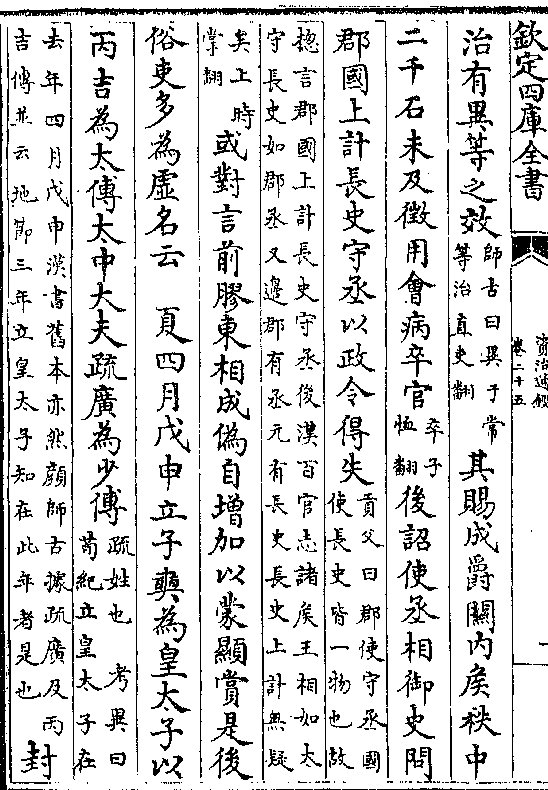 欽定四庫全書
資治通鑑
卷二十五
治有異等之效師古曰異于常等治直吏翻其賜成爵關内矦秩中
二千石未及徵用會病卒官卒子恤翻後詔使丞相御史問
郡國上計長史守丞以政令得失貢父曰郡使守丞國使長史皆一物也故
揔言郡國上計長史守丞後漢百官志諸矦王相如太
守長史如郡丞又邊郡有丞元有長史長史上計無疑
矣上時掌翻或對言前膠東相成偽自增加以蒙顯賞是後
俗吏多為虛名云　夏四月戊申立子奭為皇太子以
丙吉為太傅太中大夫疏廣為少傅疏姓也　考異曰荀紀立皇太子在
去年四月戊申漢書舊本亦然顔師古據疏廣及丙
吉傳並云地節三年立皇太子知在此年者是也封